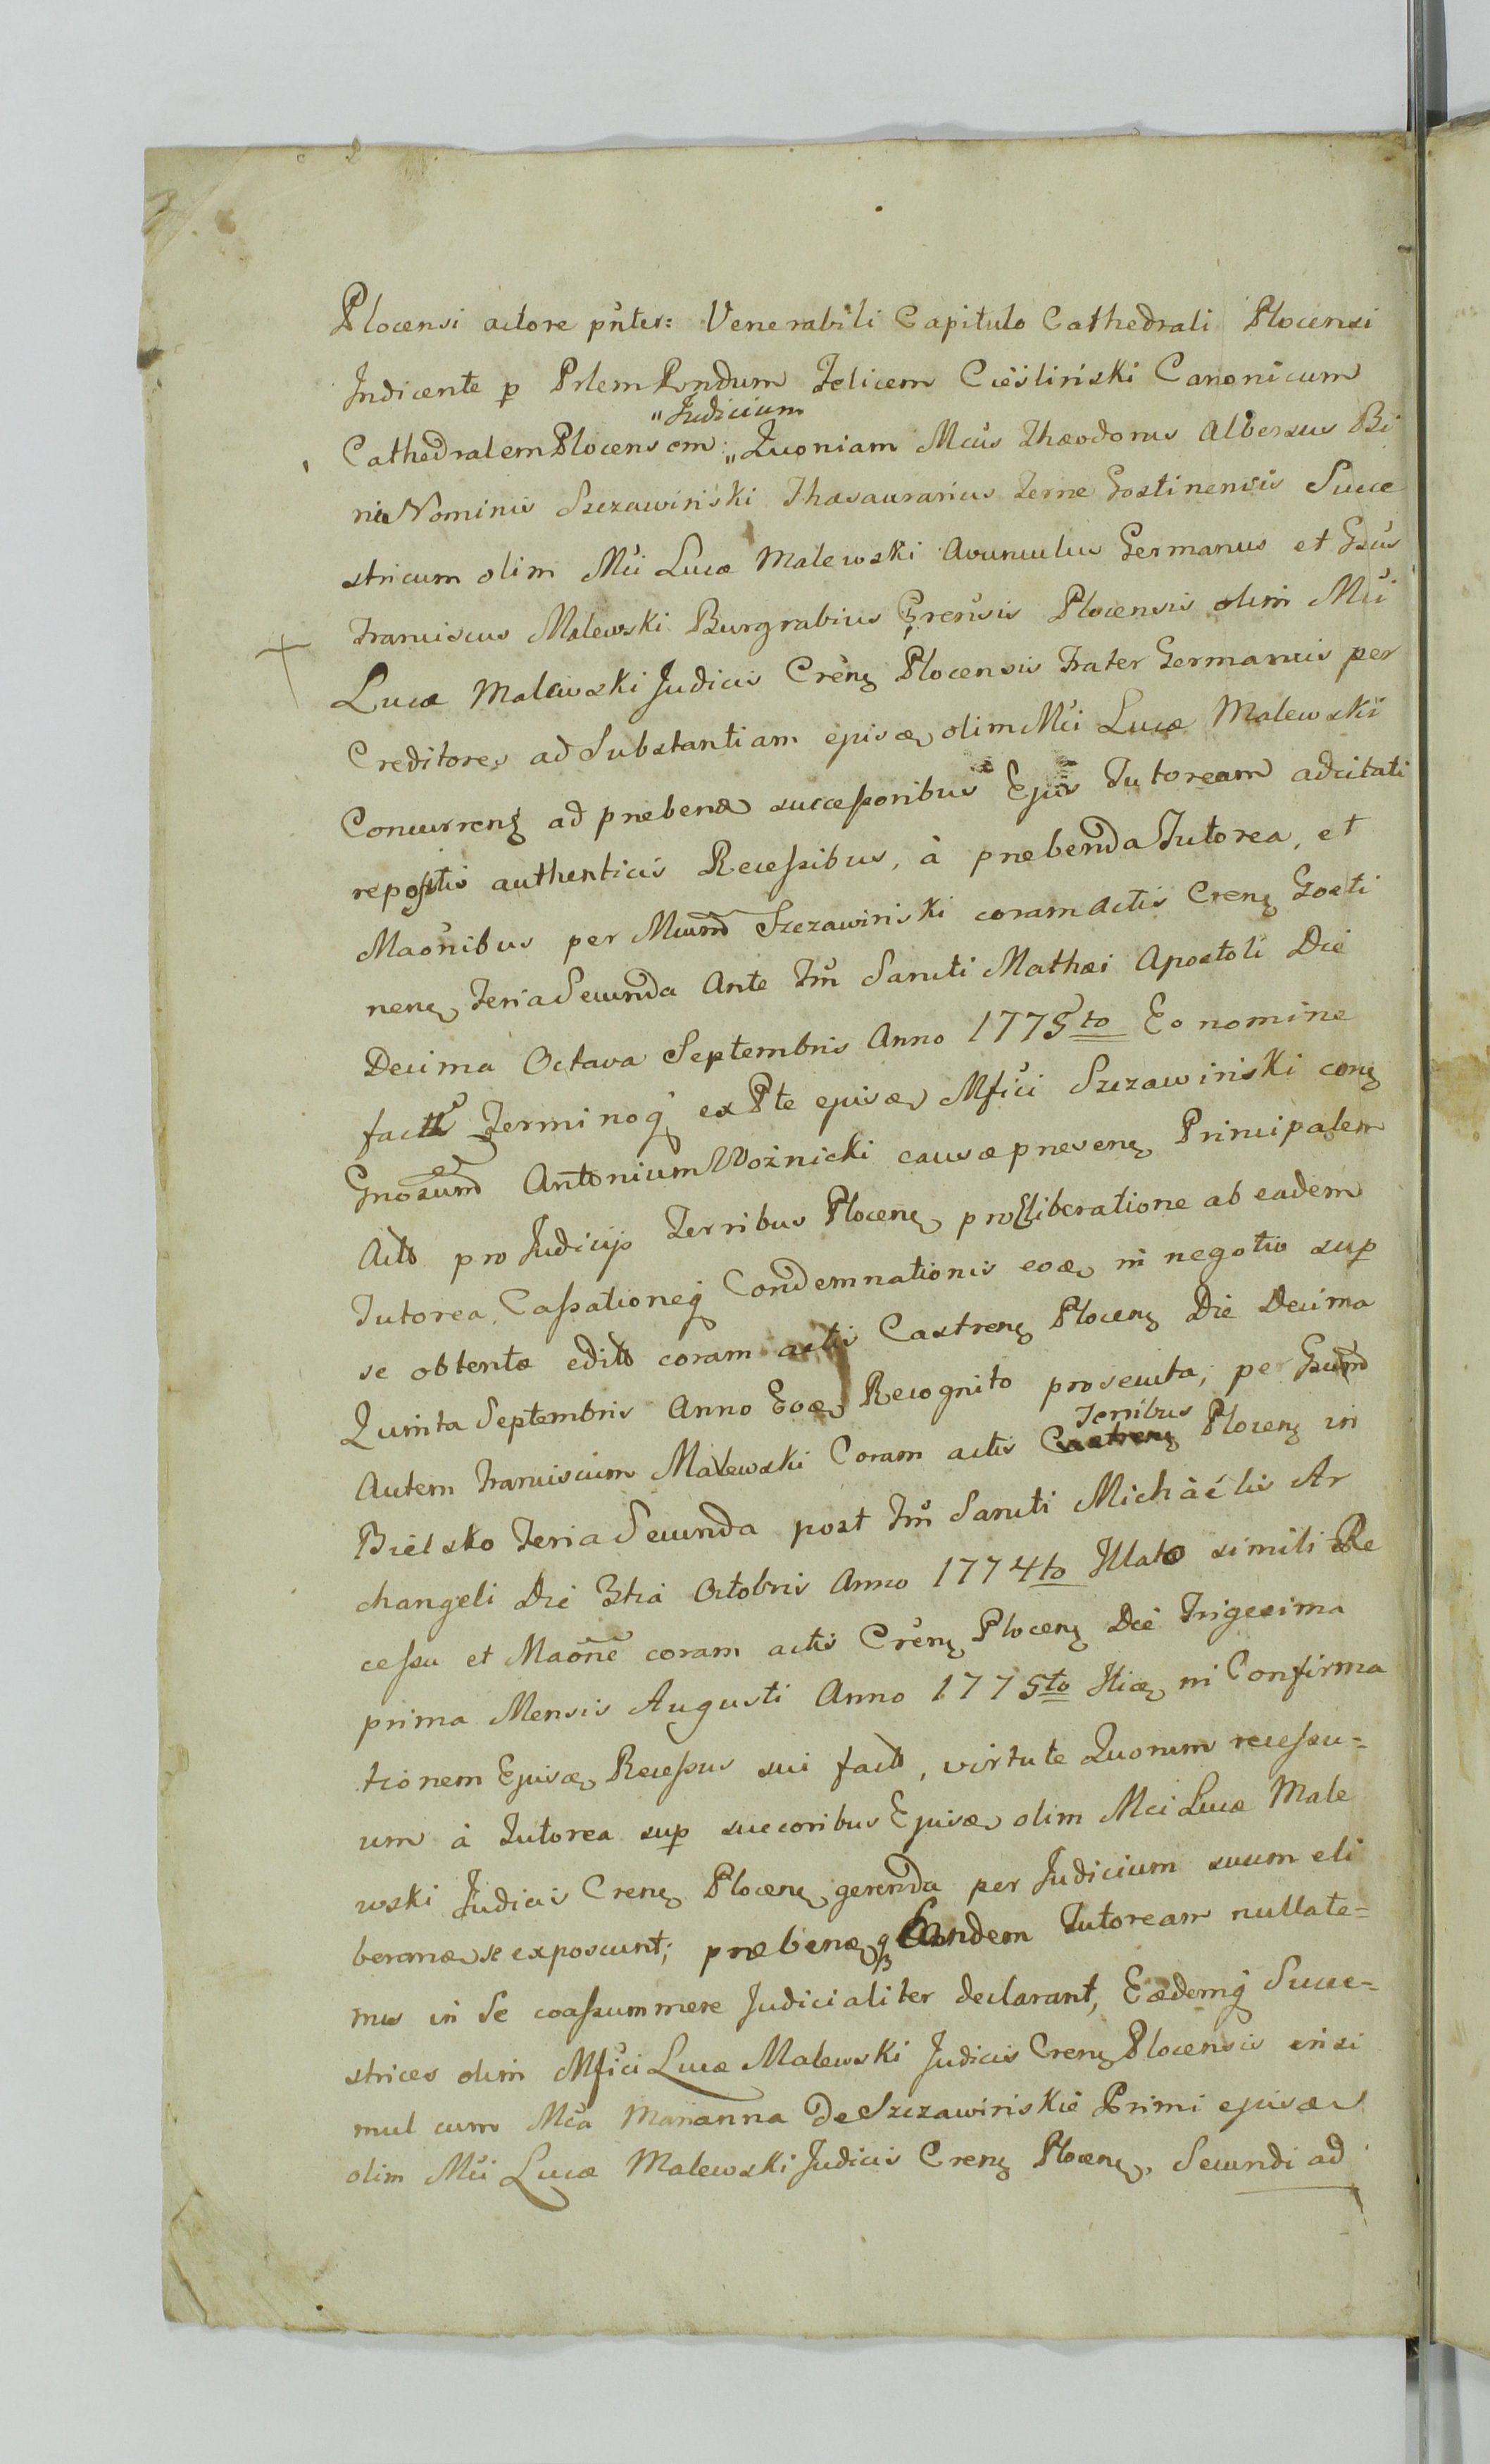 Plocensi actore pñter: Venerabili Capitulo Cathedrali Plocensi
Indicente p Prlem Rndum Felicem Cieśliński Canonicum
"Judicium
Cathedralem Plocensem: „Quoniam Mcus Theodorus Albersus Bi
nis Nominis Szczawiński Thesaurarius Terrae Gostinensis Succe
stricum olim Mci Lucæ Malewski Avunculus Germanus et Gsus
Franciscus Malewski Burgrabius Crensis Plocensis olim Mci
Lucæ Malewski Judicis Creng Plocensis Frater Germanus per
Creditores ad Substantiam ejusœ olim Mci Lucæ Malewski
Concurreng ad præbenda successoribus Ejus Tutoream adcitati
repositis authenticis Recessibus, à præbenda Tutorea, et
Maonibus per Mcum Szczawiński coram actis Creng Gosti
neng Feria Secunda Ante Fm Sancti Mathæi Apostoli Die
Decima Octava Septembris Anno 1775to Eo nomine
factis Terminoq ex Pte ejusœ Mfici Szczawiński cong
Gnosum Antonium Woźnicki causæ preseng Principalem
Acto pro Judicijs Terribus Ploceng pro liberatione ab eadem
Tutorea, Cassationeq Condemnationis eoæ in negotio sup
se obtentæ edito coram actis Castreng Ploceng Die Decima
Quinta Septembris Anno Eoæ Recognito prosecuta; per Gsum
Terribus
Autem Franciscum Malewski Coram actis Castreng Ploceng in
Bielsko Feria Secunda post Fm Sancti Michaëlis Ar
changeli Die 3tia Octobris Anno 1774to Illato simili Re
cessu et Maone coram actis Creng Ploceng Die Trigesima
prima Mensis Augusti Anno 1775to Itiœ in Confirma
tionem Ejusœ Recessus sui facto, virtute Quorum recessu=
um à Tutorea sup succoribus Ejusœ olim Mci Lucæ Male
wski Judicis Creng Ploceng gerenda per Judicium suum eli
berariœ se exposcunt; præbenœq Eandem Tutoream nullate=
nus in se coassummere Judicialiter declarant, Eædemq Succe=
strices olim Mfici Lucæ Malewski Judicis Creng Plocensis insi
mul cum Mca Marianna De Szczawińskie Primi ejusœ
olim Mci Lucæ Malewski Judicis Creng Ploceng, Secundi ad